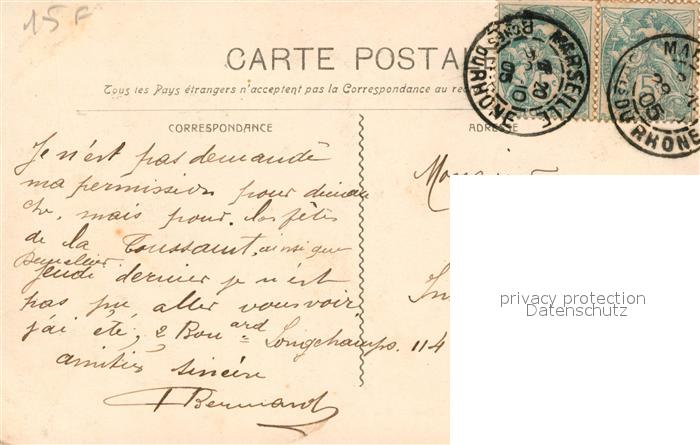 15 F
CARTE POSTAL
Tous les Pays étrangers n'acceptent pas la Correspondance au re
CORRESPONDANCE
ADRESSE
MARSEILLE
BCHES DU RHONE
20
10
05
MA
05
DU RHONE
Je n'est pas demandé
ma permission pour diman
che, mais pour les fêtes
de la Toussaint, ainsi que
jeudi dernier je n'est
pas pu aller vous voir
j'ai été, 2 Bou ard Longchamps. 114
amitiés sincère
Bernard
privacy protection
Datenschutz